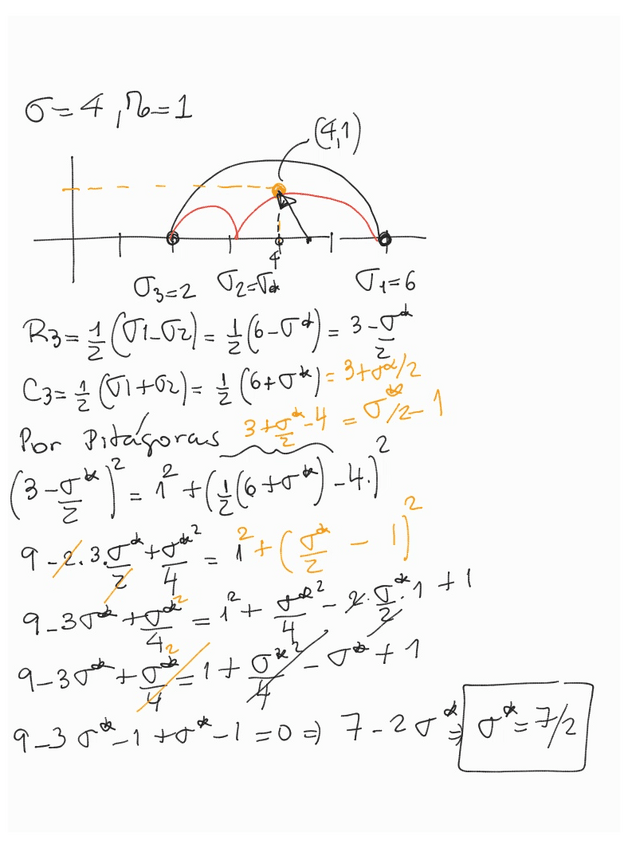 σ=4, τ=1
(4,1)
4
σ3=2 σ2=σ* σ1=6
R3=1/2(σ1-σ2)=1/2(6-σ*)=3-σ*/2
C3=1/2(σ1+σ2)=1/2(6+σ*)=3+σ*/2
Por Pitágoras 3+σ*/2-4=σ*/2-1
(3-σ*/2)²=1²+(1/2(6+σ*)-4.)²
9-2.3.σ*/2+σ*²/4=1²+(σ*/2-1)²
9-3σ*+σ*²/4=1²+σ*²/4-2.σ*/2.1+1
9-3σ*+σ*²/4=1+σ*²/4-σ*+1
9-3σ*-1+σ*-1=0⇒7-2σ*⇒σ*=7/2